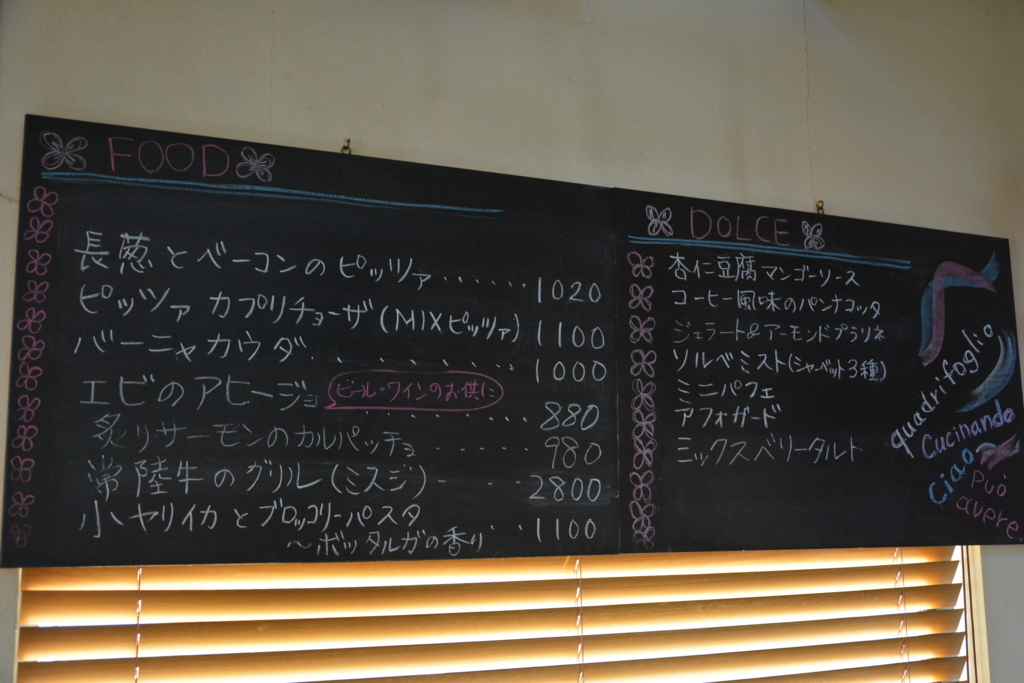 FOOD
長葱とベーコンのピッツァ……1020
ピッツァ カプリチョーザ(MIXピッツァ) 1100
バーニャカウダ......1000
エビのアヒージョ ビール・ワインのお供に ....880
炙りサーモンのカルパッチョ ......980
常陸牛のグリル(ミスジ)---2800
小ヤリイカとブロッコリーパスタ ...1100
～ボッタルガの香り
DOLCE
杏仁豆腐マンゴーソース
コーヒー風味のパンナコッタ
ジェラート&アーモンドプラリネ
ソルベミスト(シャーベット3種)
ミニパフェ
アフォガード
ミックスベリータルト
quadrifoglio
Cucinando
Ciao
Può
avere.